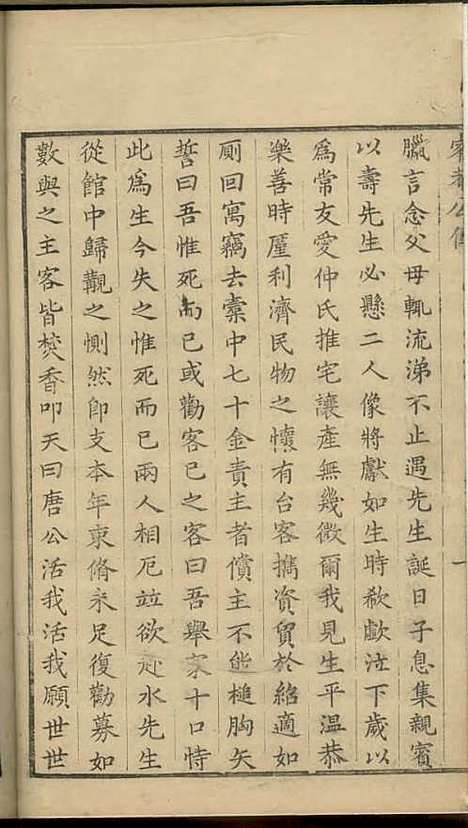 臘言念父母輒流涕不止遇先生誕日子息集親賓
以壽先生必懸二人像將獻如生時欷歔泣下歲以
為常友愛仲氏推宅讓產無幾微爾我見生平溫恭
樂善時厪利濟民物之懷有台客攜資貿於紹適如
厠回寓竊去橐中七十金責主者償主不能搥胸矢
誓曰吾惟死而已或勸客已之客曰吾舉家十口恃
此為生今失之惟死而已兩人相厄竝欲赴水先生
從館中歸覩之惻然卽支本年束脩未足復勸募如
數與之主客皆焚香叩天曰唐公活我活我願世世